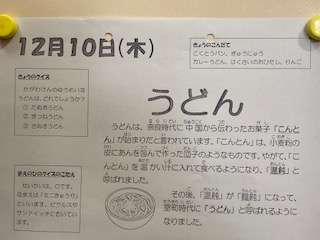 12月10日(木)
きょうのこんだて
こくとうパン、ぎゅうにゅう
カレーうどん、はくさいのおひたし、りんご
きょうのクイズ
かがわけんのゆうめいな
うどんは、どれでしょうか？
① たぬきうどん
② きつねうどん
③ さぬきうどん
うどん
うどんは、奈良時代に中国から伝わったお菓子「こんと
ん」が始まりだと言われています。「こんとん」は、小麦粉の
皮にあんを包んで作った団子のようなものです。やがて、「こ
んとん」を温かい汁に入れて食べるようになり、「温飩」と
呼ばれました。
その後、「温飩」が「饂飩」になって、
室町時代に「うどん」と呼ばれるように
なりました。
まえのひのクイズのこたえ
せいかいは、○です。